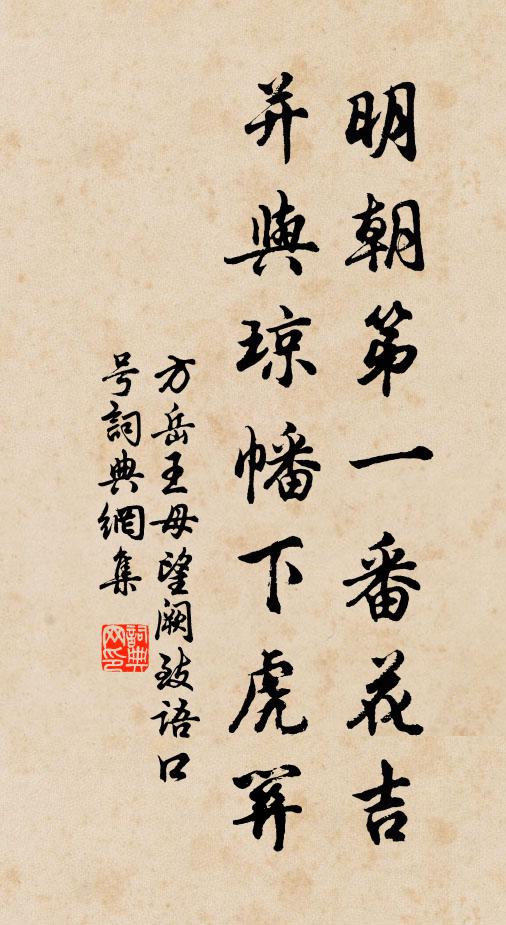 明朝第一番花吉
并與琼幡下虎關
方岳王母望闕致語口
号詞典網集
詞典
网印